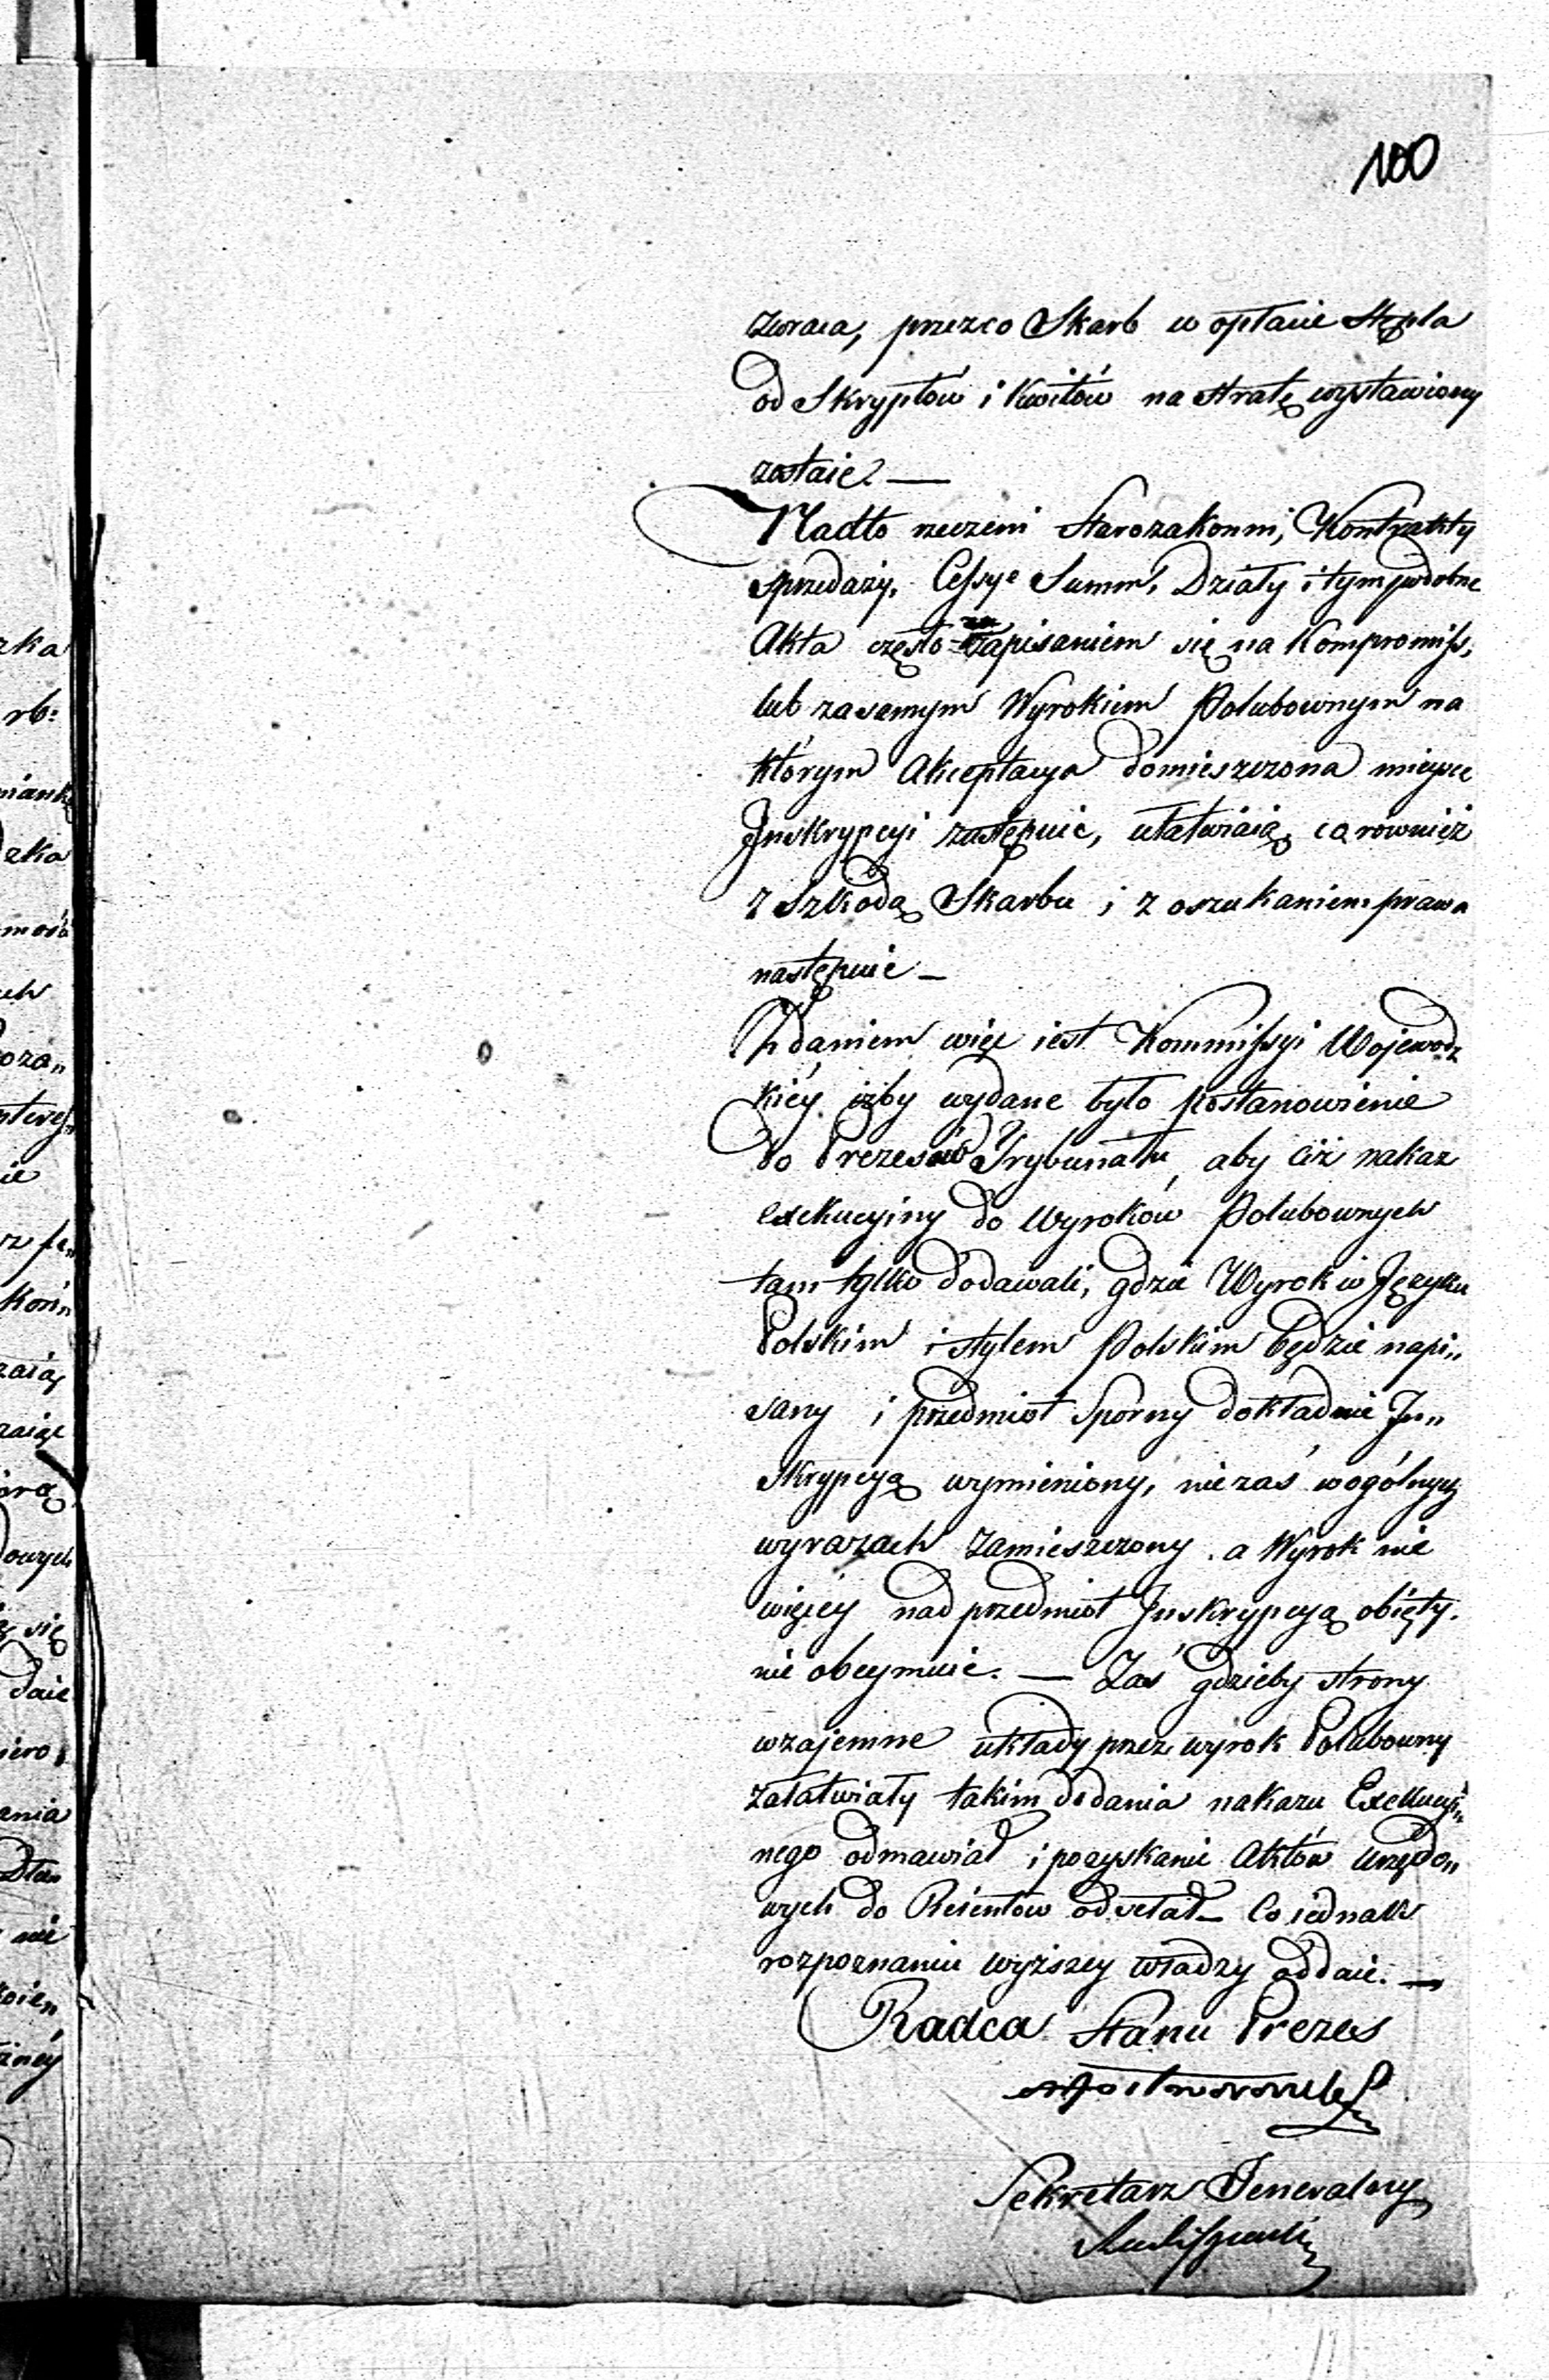 100
zwraca, przezco Skarb w opłacie Stępla
od Skryptów i Kwitów na stratę wystawiony
zostaie. —
Nadto rzeczeni Starozakonni, Kontrakty
sprzedaży, Cessye Summ, Działy i tym podobne
Akta często za zapisaniem się na Kompromiss,
lub za samym Wyrokiem Polubownym na
którym Akceptacya domieszczona mieysce
Inskrypcyi zastępuie, ułatwiaią, co również
z Szkodą Skarbu i z oszukaniem prawa
następuie —
Zdaniem więc iest Kommissyi Wojewodz
kiéy iżby wydane było postanowienie
do Prezesów Trybunału, aby ciż nakaz
exekucyiny do Wyroków Polubownych
tam tylko dodawali, gdzie Wyrok w Języku
Polskim i stylem Polskim będzie napi„
sany i przedmiot Sporny dokładnie In„
skrypcyą wymieniony, nie zaś w ogólnych
wyrazach zamieszczony. a Wyrok nie
więcéy nad przedmiot Inskrypcyą obięty.
nie obeymuie. — Zaś gdzieby strony
wzajemne układy przez wyrok Polubowny
załatwiały takim dodania nakazu Exekucyi„
nego odmawiał i po zyskanie Aktów Urzędo„
wych do Reientów odsełał — Co iednak
rozpoznaniu wyższey władzy oddaie. —
Radca Stanu Prezes
Sekretarz Jeneralny
zka
rb:
zka
ie
zaią
się
daie
ania
nie